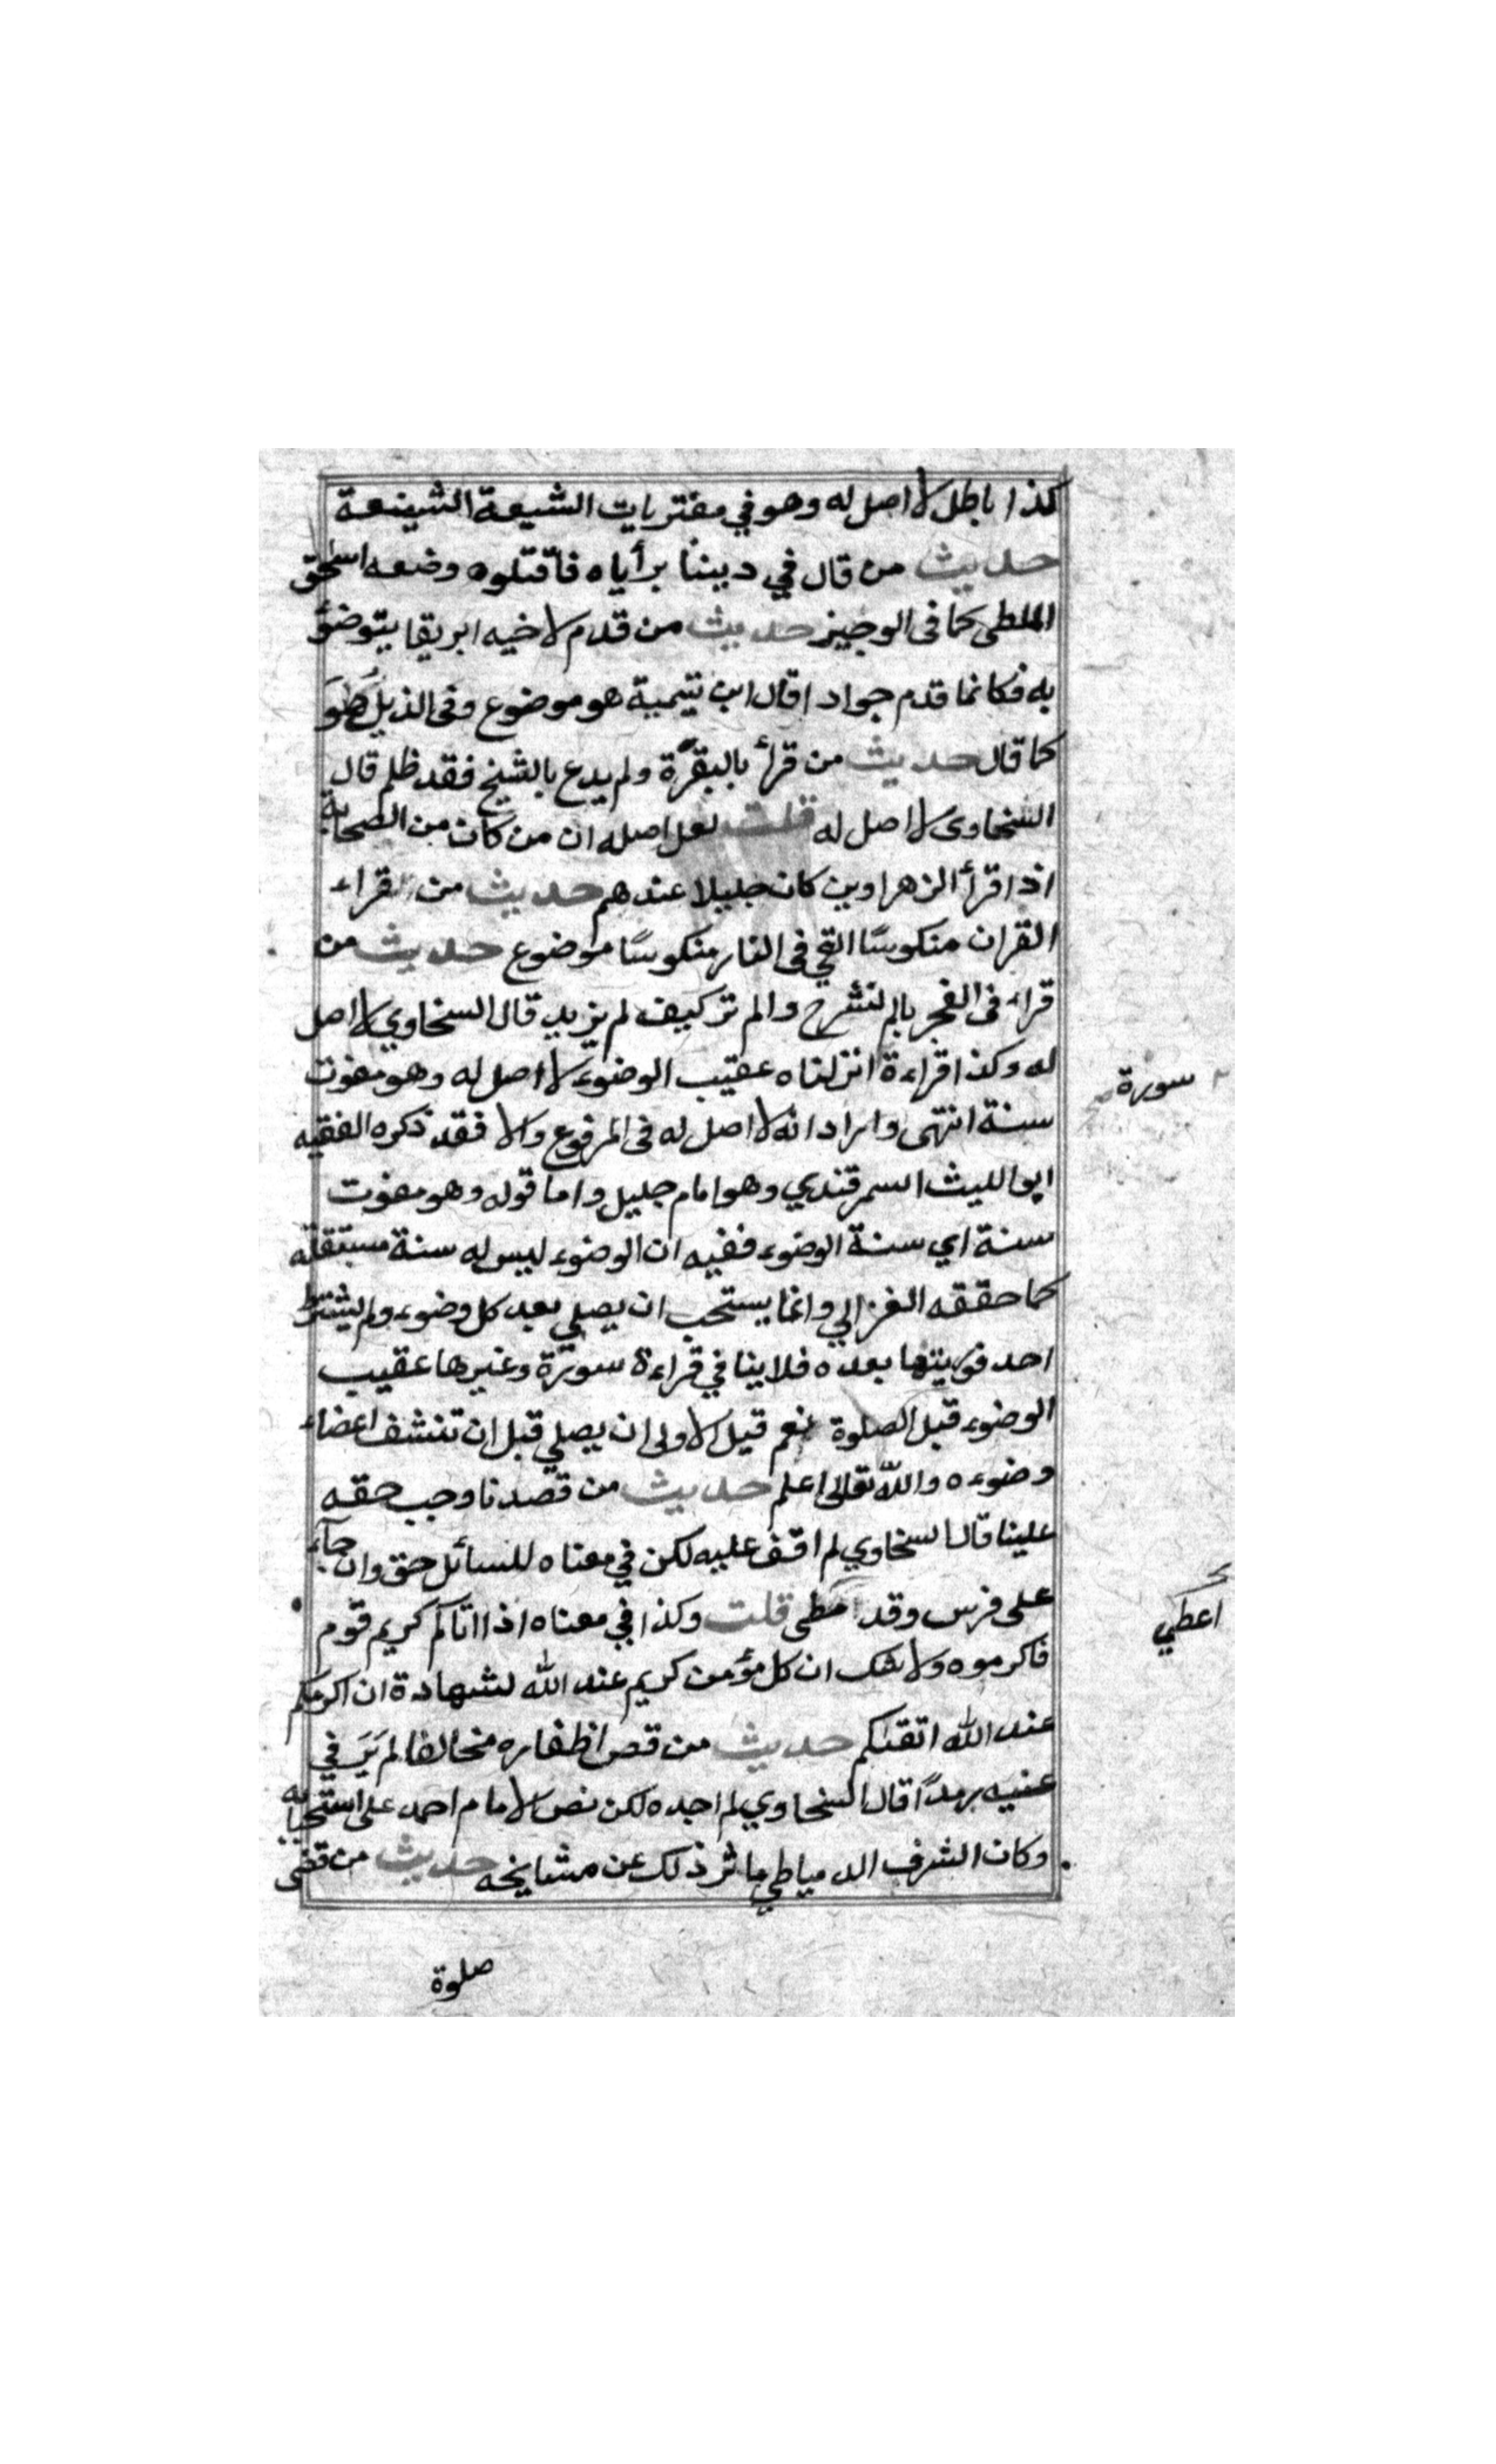 كذا باطل لا اصل له وهو في مفتريات الشيعة الشنيعة
حديث من قال في ديننا برأياه فاقتلوه وضعه اسحق
الملطى كما فى الوجيز حديث من قدم لاخيه ابريقا يتوضؤ
به فكانما قدم جوادا قال ابن تيمية هو موضوع وفى الذيل هو
كما قال حديث من قرأ بالبقرة ولم يدع بالشيخ فقد ظلم قال
السخاوى لا اصل له قلت لعل اصله ان من كان من الصحابة
اذا قرأ الزهراوين كان جليلا عندهم حديث من القراء
القران منكوسًا القي فى النار منكوسًا موضوع حديث من
قراء فى الفجر بالم نشرح والم تر كيف لم يزيد قال السخاوي لا اصل
له وكذا قراءة انزلناه عقيب الوضوء لا اصل له وهو مفوت
سورة
سنة انتهى واراد انه لا اصل له فى المرفوع والا فقد ذكره الفقيه
ابو الليث السمرقندي وهو امام جليل واما قوله وهو مفوت
سنة اي سنة الوضوء ففيه ان الوضوء ليس له سنة مستقلة
كما حققه الغزالي وانما يستحب ان يصلي بعد كل وضوء ولم يشترط
احد فوريتها بعده فلا ينافي قراءة سورة وغيرها عقيب
الوضوء قبل الصلوة نعم قيل الاولى ان يصلي قبل ان تنشف اعضاء
وضوءه والله تعالى اعلم حديث من قصدنا وجب حقه
علينا قال السخاوي لم اقف عليه لكن في معناه للسائل حق وان جاء
على فرس وقد قلت وكذا في معناه اذا اتاكم كريم قوم
اعطي
فاكرموه ولا شك ان كل مؤمن كريم عند الله لشهادة ان اكرمكم
عند الله اتقىكم حديث من قص اظفاره مخالفا لم يَرَ في
عنيه رمدًا قال السخاوي لم اجده لكن نص الامام احمد على استحبابه
وكان الشرف الدمياطي ياثر ذلك عن مشايخه حديث من قضى
صلوة